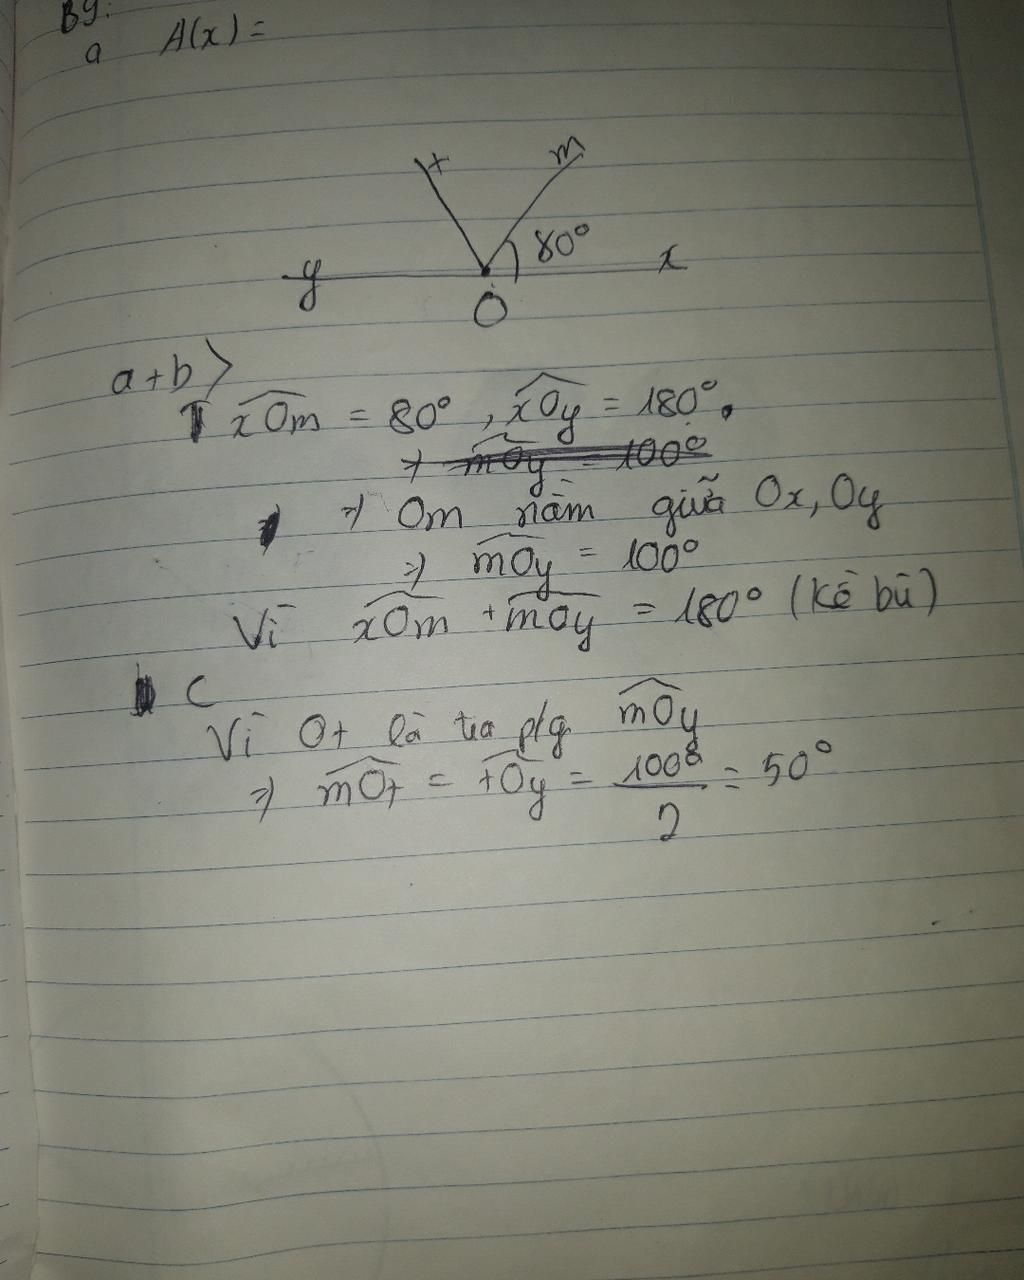 B9:
a A(x) =
t m
80°
y x
O
a+b>
xOm = 80°, xOy = 180°.
=> mOy = 100°
=> Om nằm giữa Ox, Oy
=> mOy = 100°
Vì xOm + mOy = 180° (kề bù)
c
Vì Ot là tia p/g mOy
=> mOt = tOy = 100°/2 = 50°